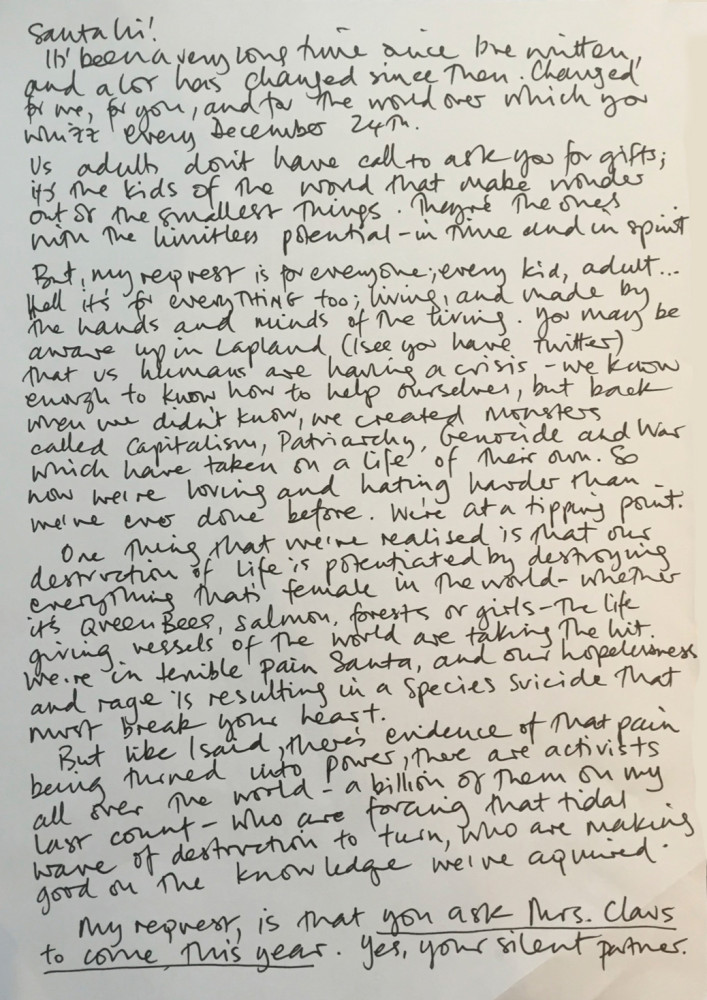 Santa hi!
It's been a very long time since I've written,
and a lot has changed since then. Changed
for me, for you, and for the world over which you
whizz every December 24th.
Us adults don't have call to ask you for gifts;
it's the kids of the world that make wonder
out of the smallest things. They're the ones
with the limitless potential - in time and in spirit
But, my request is for everyone; every kid, adult...
Hell it's for everyTHING too; living, and made by
the hands and minds of the living. You may be
aware up in Lapland (I see you have Twitter)
that us humans are having a crisis - we know
enough to know how to help ourselves, but back
when we didn't know, we created monsters
called Capitalism, Patriarchy, Genocide and War
which have taken on a life of their own. So
now we're loving and hating harder than
we've ever done before. We're at a tipping point.
One thing that we've realised is that our
destruction of life is potentiated by destroying
everything that's female in the world - whether
it's Queen Bees, salmon, forests or girls - the life
giving vessels of the world are taking the hit.
We're in terrible pain Santa, and our hopelessness
and rage is resulting in a species suicide that
must break your heart.
But like I said, there's evidence of that pain
being turned into power, there are activists
all over the world - a billion of them on my
last count - who are forcing that tidal
wave of destruction to turn, who are making
good on the knowledge we've aquired.
My request, is that you ask Mrs. Claus
to come this year. Yes, your silent partner.